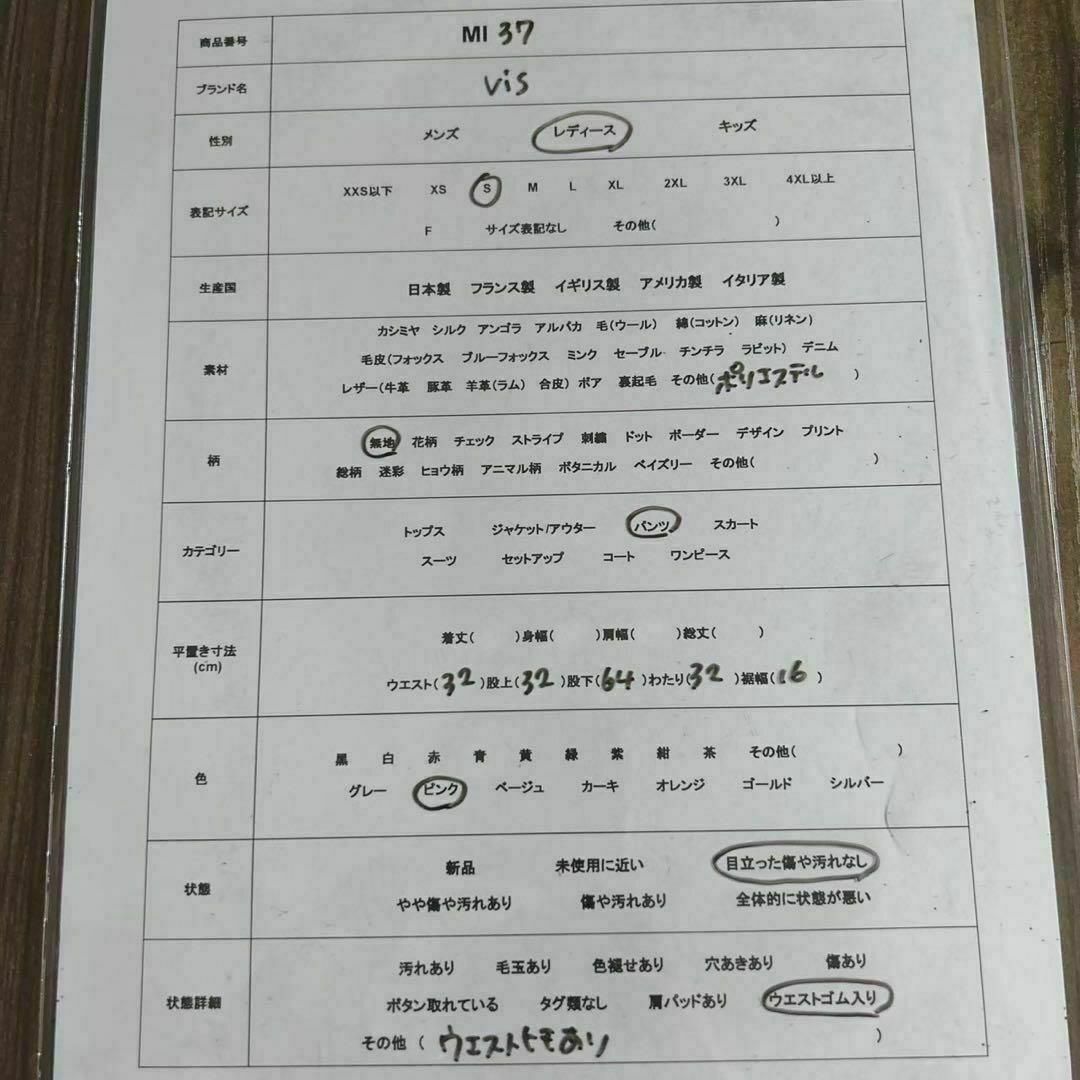 商品番号 MI 37
ブランド名 vis
性別 メンズ レディース キッズ
表記サイズ XXS以下 XS S M L XL 2XL 3XL 4XL以上
F サイズ表記なし その他( )
生産国 日本製 フランス製 イギリス製 アメリカ製 イタリア製
素材 カシミヤ シルク アンゴラ アルパカ 毛(ウール) 綿(コットン) 麻(リネン)
毛皮(フォックス ブルーフォックス ミンク セーブル チンチラ ラビット) デニム
レザー(牛革 豚革 羊革(ラム) 合皮) ボア 裏起毛 その他(ポリエステル )
柄 無地 花柄 チェック ストライプ 刺繍 ドット ボーダー デザイン プリント
総柄 迷彩 ヒョウ柄 アニマル柄 ボタニカル ペイズリー その他( )
カテゴリー トップス ジャケット/アウター パンツ スカート
スーツ セットアップ コート ワンピース
平置き寸法 (cm) 着丈( )身幅( )肩幅( )総丈( )
ウエスト(32)股上(32)股下(64)わたり(32)裾幅(16)
色 黒 白 赤 青 黄 緑 紫 紺 茶 その他( )
グレー ピンク ベージュ カーキ オレンジ ゴールド シルバー
状態 新品 未使用に近い 目立った傷や汚れなし
やや傷や汚れあり 傷や汚れあり 全体的に状態が悪い
状態詳細 汚れあり 毛玉あり 色褪せあり 穴あきあり 傷あり
ボタン取れている タグ類なし 肩パッドあり ウエストゴム入り
その他 ( ウエストヒモあり )